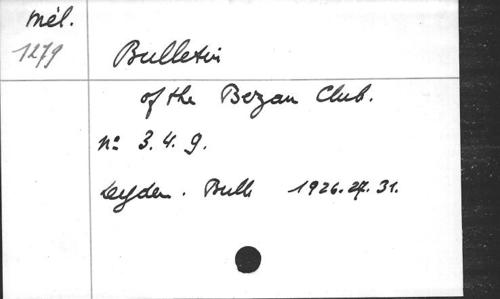 Mél.
1279
Bulletin
of the Bezan Club.
nº 3. 4. 9.
Leyden. Brill 1926. 27. 31.